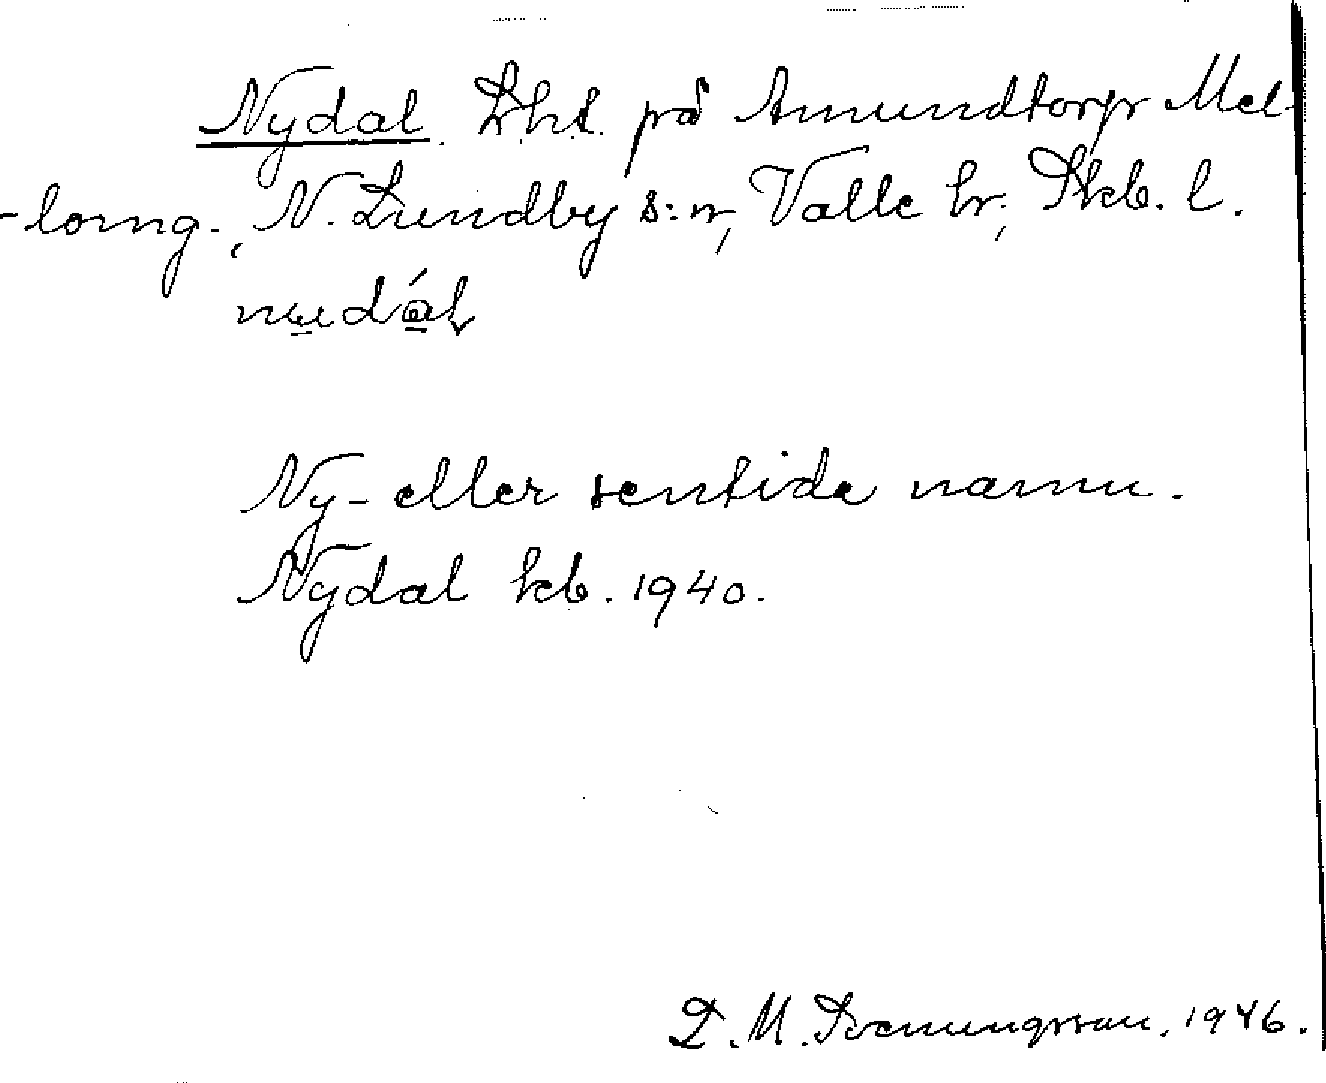 Nydal. Lht. på Amundtorp Mel-
-lomg., N. Lundby s:n, Valle hr., Skb. l.
Ny- eller sentida namn.
Nydal kb. 1940.
D. M. Svenungsson. 1946.